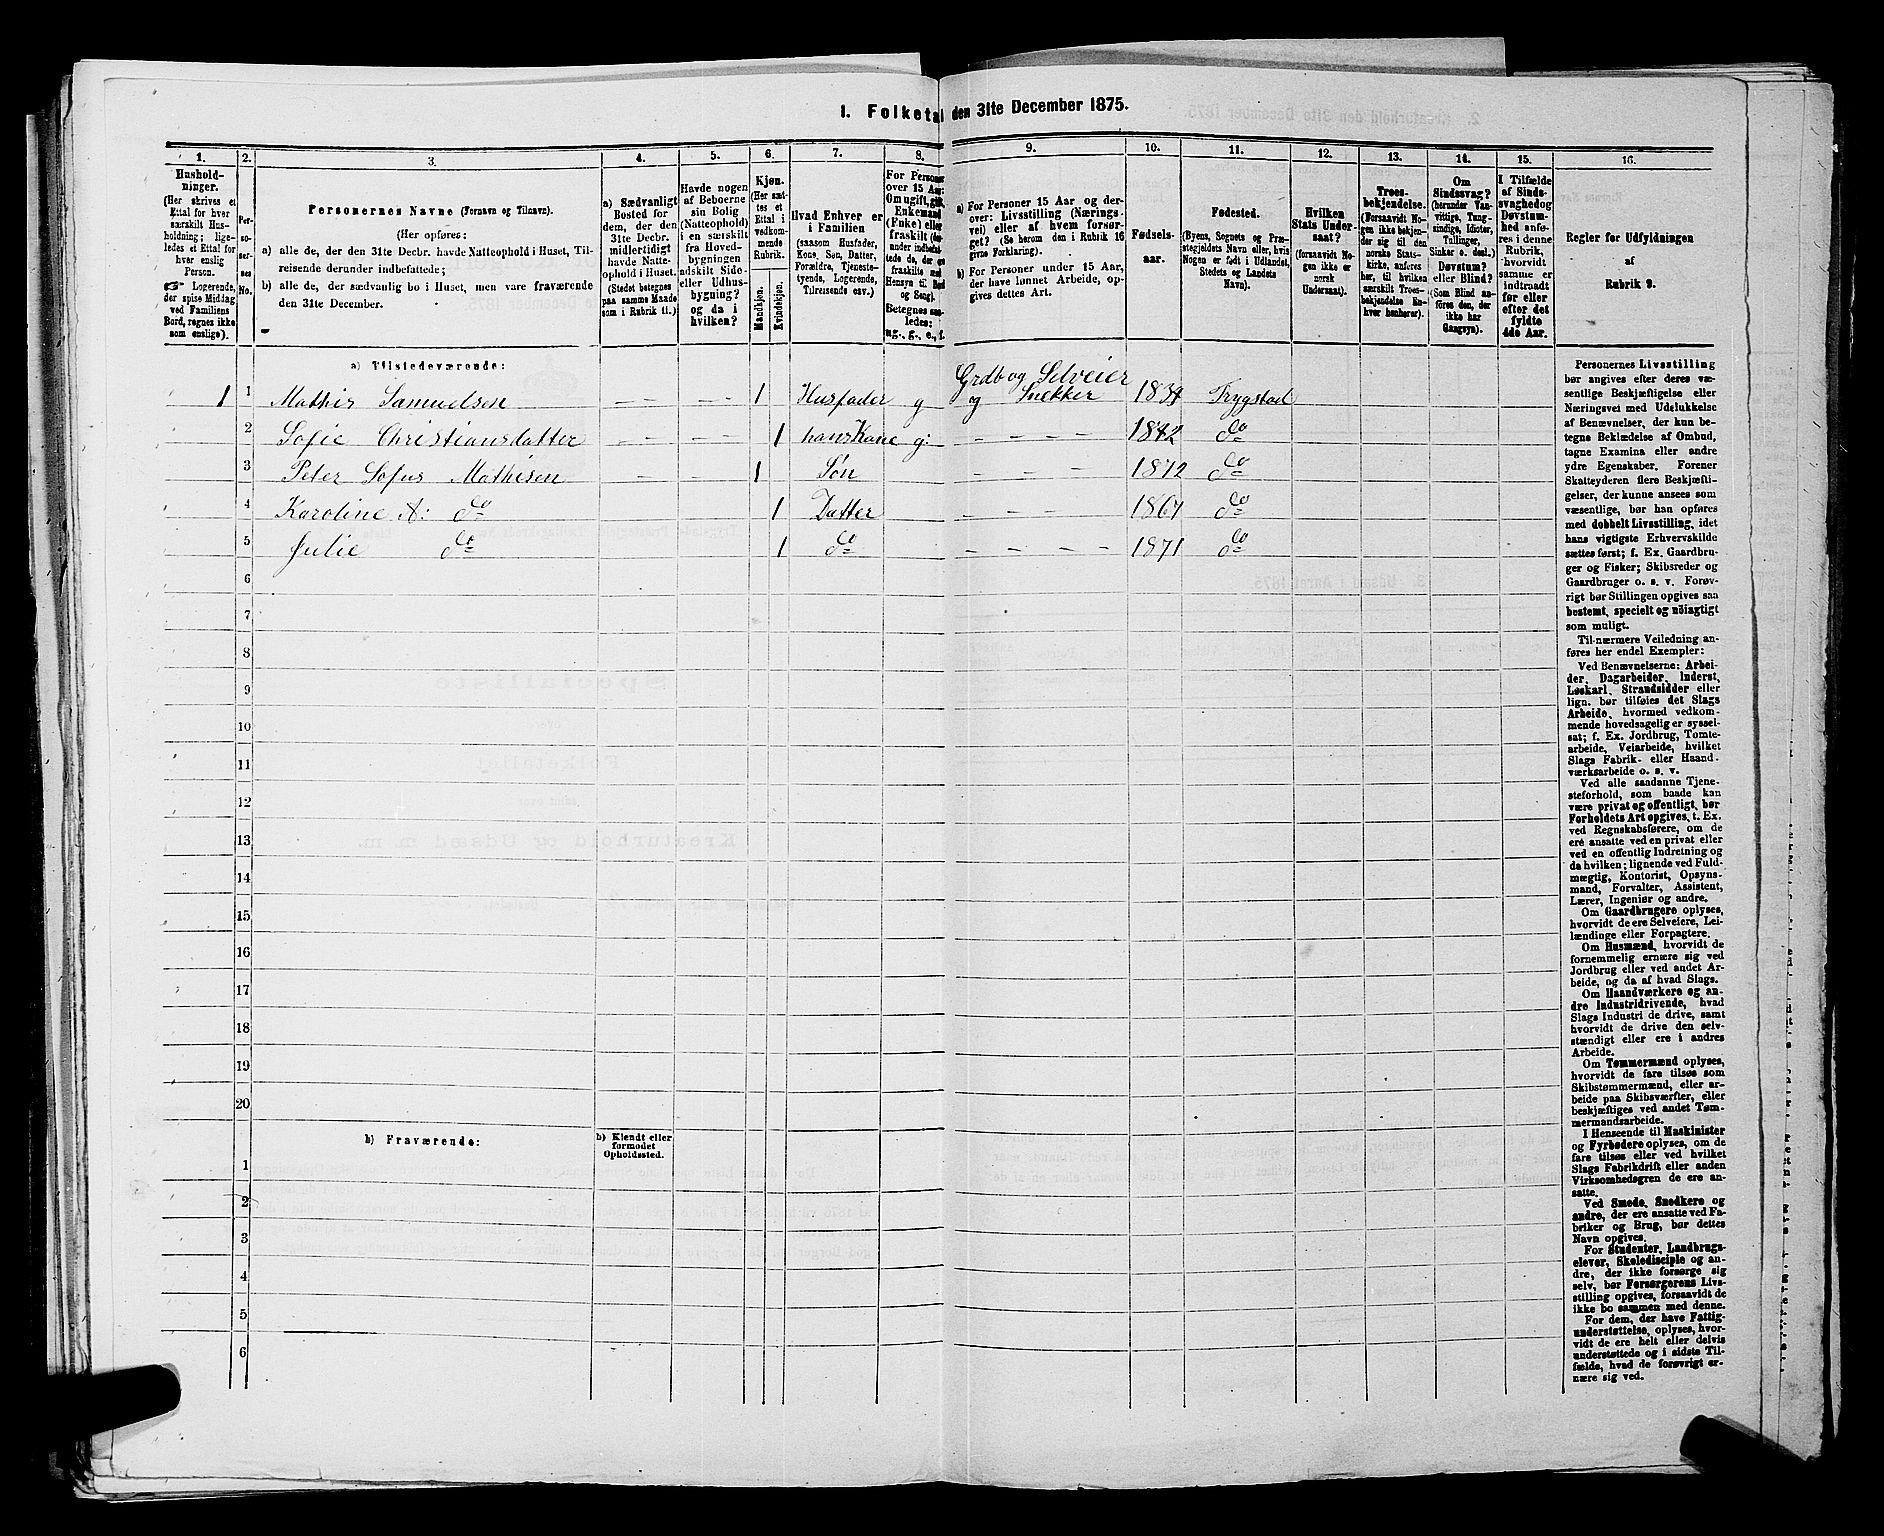 1. Folketal den 31te December 1875.
1. 2. 3. 4. 5. 6. 7. 8. 9. 10. 11. 12. 13. 14. 15. 16.
Hushold-
ninger.
(Her skrives et
Ettal for hver
særskilt Hus-
holdning; lige-
ledes et Ettal for
hver enslig
Person.
Logerende,
der spise Middag
ved Familiens
Bord, regnes ikke
som enslige).
Per-
so-
ner-
nes
No.
Personernes Navne (Fornavn og Tilnavn).
(Her opføres:
a) alle de, der den 31te Decbr. havde Natteophold i Huset, Til-
reisende derunder indbefattede;
b) alle de, der sædvanlig bo i Huset, men vare fraværende
den 31te December.
a) Sædvanligt
Bosted for
dem, der den
31te Decbr.
midlertidigt
havde Natte-
ophold i Huset.
(Stedet betegnes
paa samme Maade
som i Rubrik 11.)
Havde nogen
af Beboerne
sin Bolig
(Natteophold)
i en særskilt
fra Hoved-
bygningen
adskilt Side-
eller Udhus-
bygning?
og da i
hvilken?
Kjøn.
(Her sæt-
tes et
Ettal i
vedkom-
mende
Rubrik.
Mandkjøn.
Kvindekjøn.
Hvad Enhver er
i Familien
(saasom Husfader,
Kone, Søn, Datter,
Forældre, Tjeneste-
tyende, Logerende,
Tilreisende osv.)
For Persone
over 15 Aar:
Om ugift, gift,
Enkemand
(Enke) eller
fraskilt
Betegnes saa-
ledes:
ug., g., e., f.
a) For Personer 15 Aar og der-
over: Livsstilling (Nærings-
vei) eller af hvem forsør-
get? (Se herom den i Rubrik 16
givne Forklaring).
b) For Personer under 15 Aar,
der have lønnet Arbeide, op-
gives dettes Art.
Fødsels-
aar.
Fødested.
(Byens, Sognets og Præ-
stegjeldets Navn eller, hvis
Nogen er født i Udlandet,
Stedets og Landets
Navn).
Hvilken
Stats Under-
saat?
(forsaavidt No-
gen ikke er
norsk
Undersaat).
Troes-
bekjendelse.
(Forsaavidt No-
gen ikke bekjen-
der sig til den
norske Stats-
kirke, anføres
her, til hvilken
særskilt Troes-
bekjendelse En-
hver henhører).
Om
Sindssvag?
(herunder Van-
vittige, Tung-
sindige, Idioter,
Tullinger,
Sinker o. desl.)
Døvstum?
eller Blind?
(Som Blind an-
føres den, der
ikke har
Gangsyn).
I Tilfælde
af Sinds-
svaghed og
Døvstum-
hed anfø-
res i denne
Rubrik,
hvorvidt
samme er
indtraadt
før eller
efter det
fyldte
4de Aar.
Regler for Udfyldningen
af
Rubrik 9.
a) Tilstedeværende:
Grdb og Selveier
1 1 Mathis Samuelsen — — — 1 Husfader g og Snekker 1834 Trygstad
2 Sofie Christiansdatter — — — 1 hans Kone g: — — — 1842 do
3 Peter Sofus Mathisen — — 1 Søn — — — 1872 do
4 Karoline A: do 1 Datter — — — — 1867 do
5 Julie do 1 do — — — — 1871 do
6
7
8
9
10
11
12
13
14
15
16
17
18
19
20
b) Fraværende:
b) Kjendt eller
formodet
Opholdssted.
1
2
3
4
5
6
Personernes Livsstilling
bør angives efter deres væ-
sentlige Beskjæftigelse eller
Næringsvei med Udelukkelse
af Benævnelser, der kun be-
tegne Beklædelse af Ombud,
tagne Examina eller andre
ydre Egenskaber. Forener
Skatteyderen flere Beskjæfti-
gelser, der kunne ansees som
væsentlige, bør han opføres
med dobbelt Livsstilling, idet
hans vigtigste Erhvervskilde
sættes først; f. Ex. Gaardbru-
ger og Fisker; Skibsreder og
Gaardbruger o. s. v. Forøv-
rigt bør Stillingen opgives saa
bestemt, specielt og nöiagtigt
som muligt.
Til nærmere Veiledning an-
føres her endel Exempler:
Ved Benævnelserne: Arbei-
der, Dagarbeider, Inderst,
Løskarl, Strandsidder eller
lign. bør tilføies det Slags
Arbeide, hvormed vedkom-
mende hovedsagelig er syssel-
sat; f. Ex. Jordbrug, Tomte-
arbeide, Veiarbeide, hvilket
Slags Fabrik- eller Haand-
værksarbeide o. s. v.
Ved alle saadanne Tjene-
steforhold, som baade kan
være privat og offentligt, bør
Forholdets Art opgives, t. Ex.
ved Regnskabsførere, om de
ere ansatte ved en privat eller
ved en offentlig Indretning og
da hvilken; lignende ved Fuld-
mægtig, Kontorist, Opsyns-
mand, Forvalter, Assistent,
Lærer, Ingeniør og andre.
Om Gaardbrugere oplyses,
hvorvidt de ere Selveiere, Lei-
lændinge eller Forpagtere.
Om Husmænd, hvorvidt de
fornemmelig ernære sig ved
Jordbrug eller ved andet Ar-
beide, og da af hvad Slags.
Om Haandværkere og an-
dre Industridrivende, hvad
Slags Industri de drive, samt
hvorvidt de drive den selv-
stændigt eller ere i andres
Arbeide.
Om Tømmermænd oplyses,
hvorvidt de fare tilsøs som
Skibstømmermænd, eller ar-
beide paa Skibsværfter, eller
beskjæftiges ved andet Tøm-
mermandsarbeide.
I Henseende til Maskinister
og Fyrbødere oplyses, om de
fare tilsøs eller ved hvilket
Slags Fabrikdrift eller anden
Virksomhedsgren de ere an-
satte.
Ved Smede, Snedkere og
andre, der ere ansatte ved Fa-
briker og Brug, bør dettes
Navn opgives.
For Studenter, Landbrugs-
elever, Skoledisciple og an-
dre, der ikke forsørge sig
selv, bør Forsørgerens Livs-
stilling opgives, forsaavidt de
ikke bo sammen med denne.
For dem, der have Fattig-
understøttelse, oplyses, hvor-
vidt de ere helt eller delvis
understøttede og i sidste Til-
fælde, hvad de forøvrigt er-
nære sig ved.